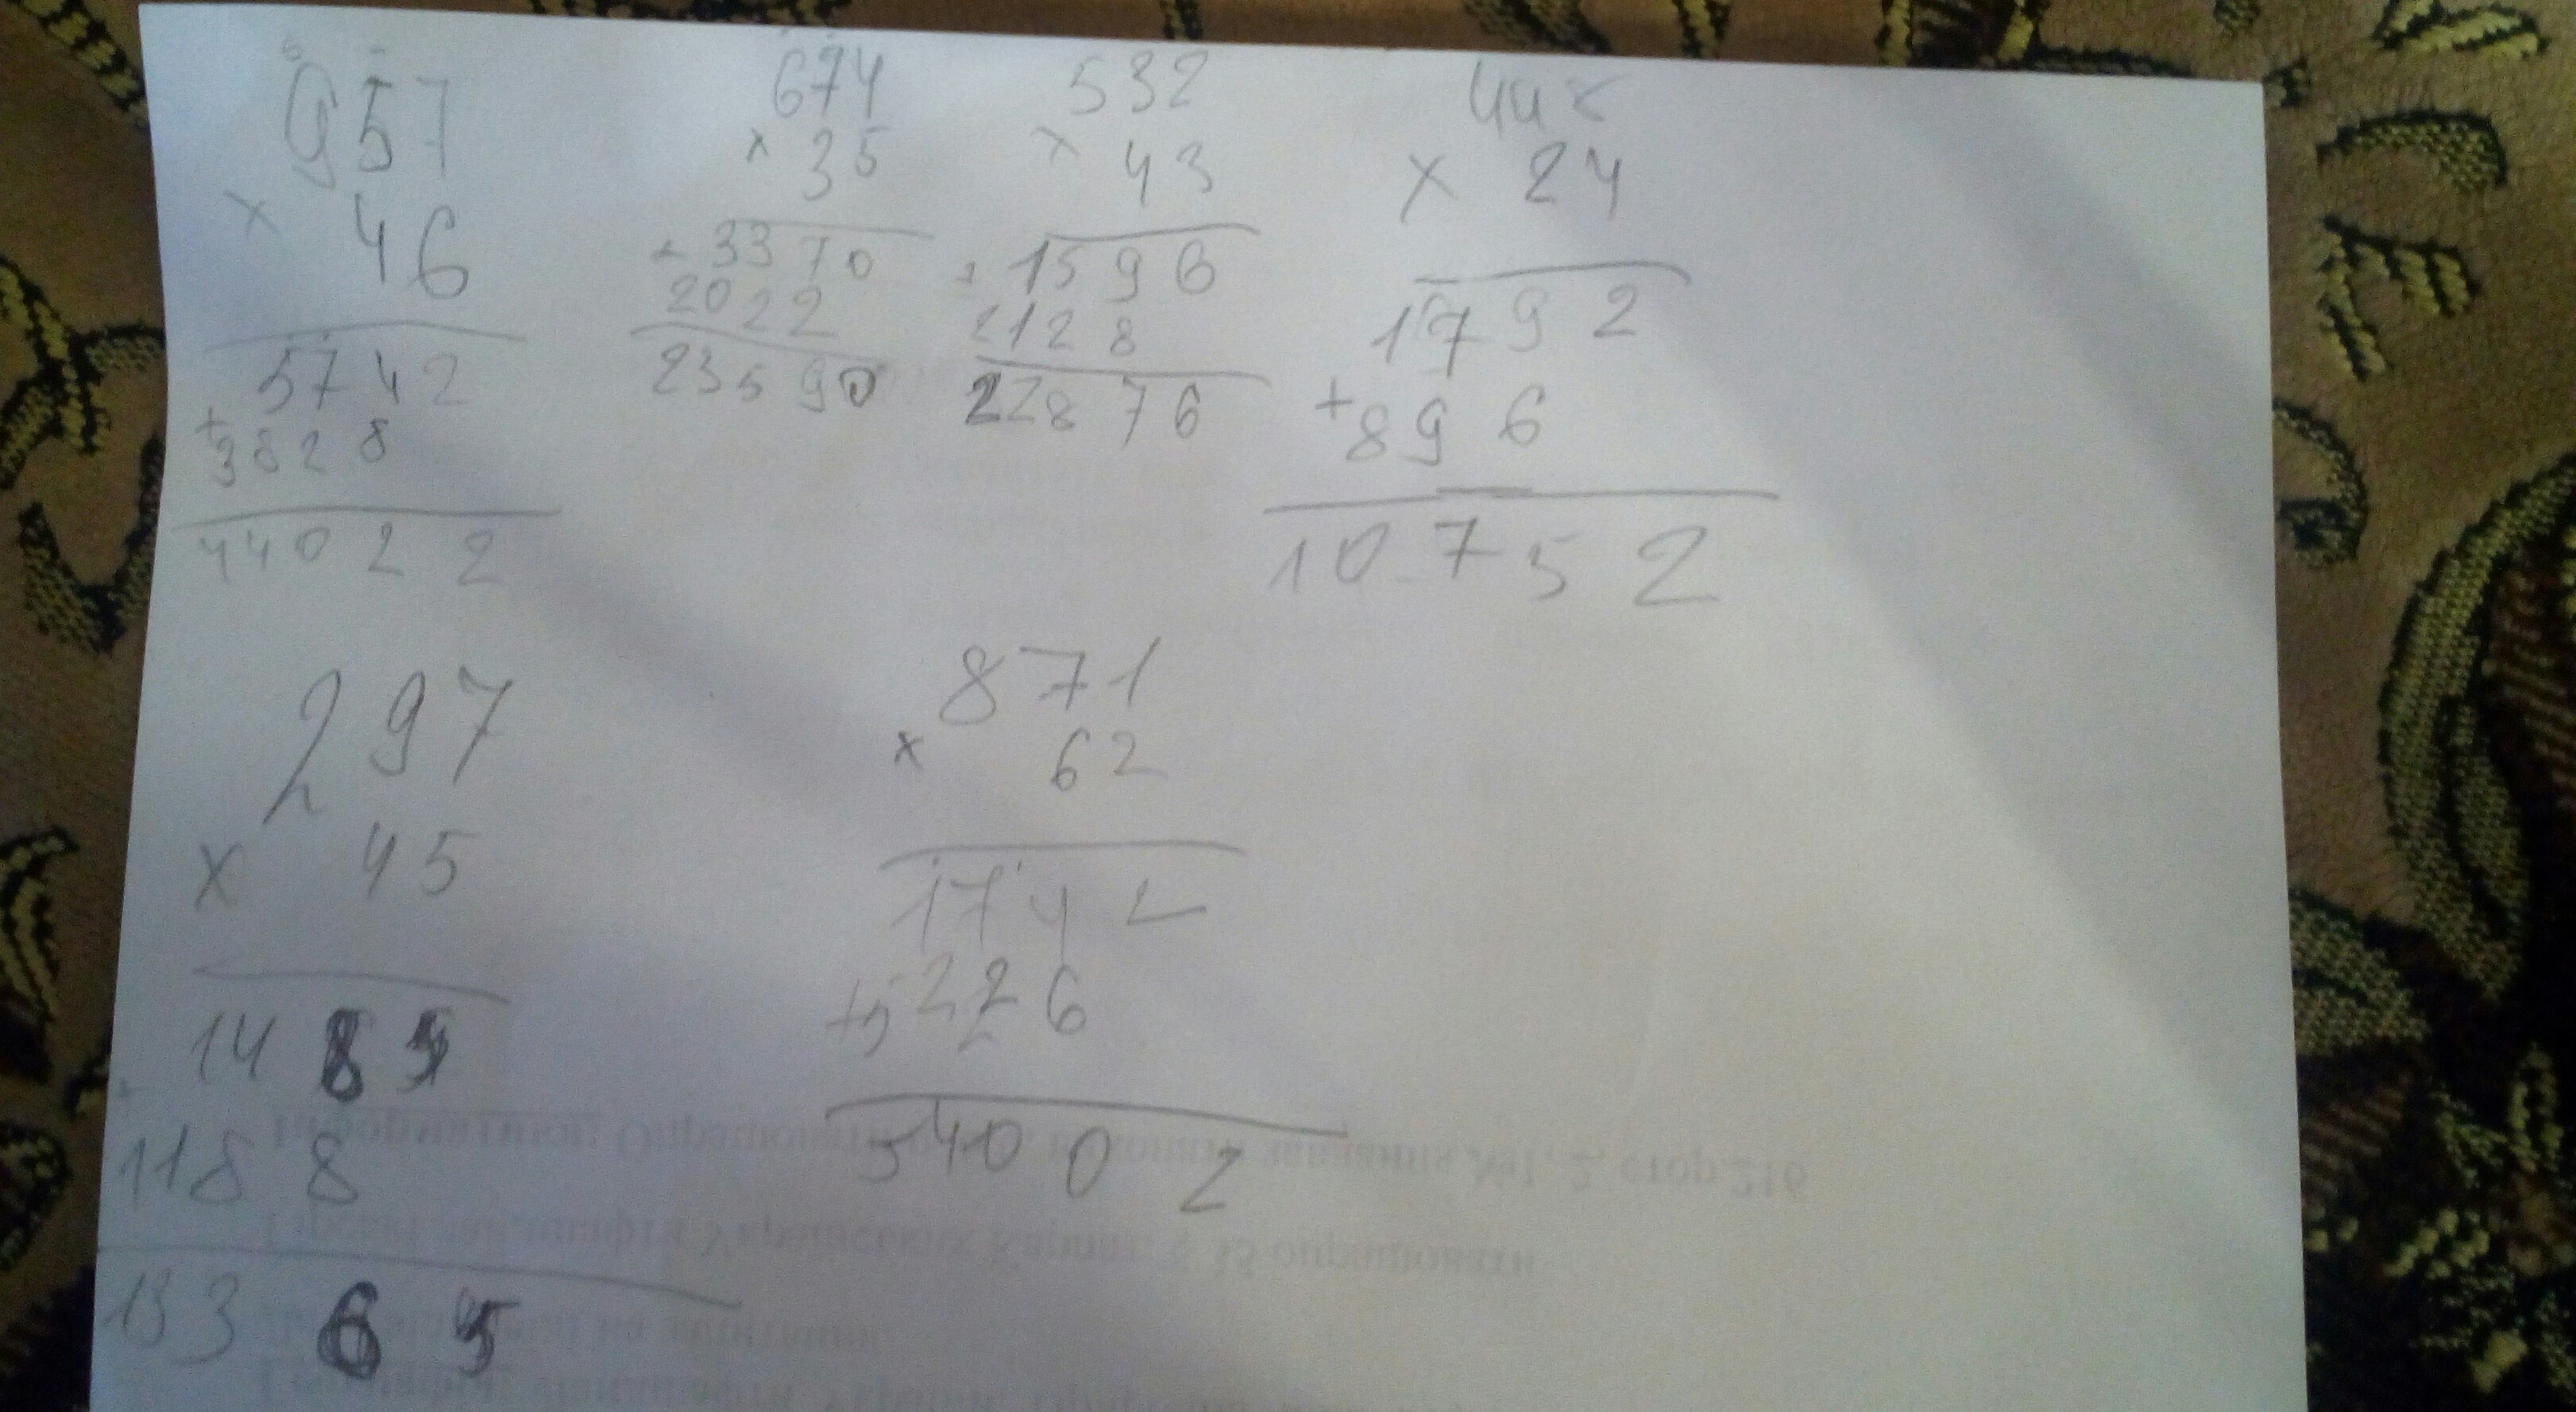 957
× 46
5742
+3828
44022
674
× 35
+3370
2022
23590
532
× 43
+1596
2128
22876
448
× 24
1792
+896
10752
297
× 45
1485
+
1188
13365
871
× 62
1742
+5226
54002